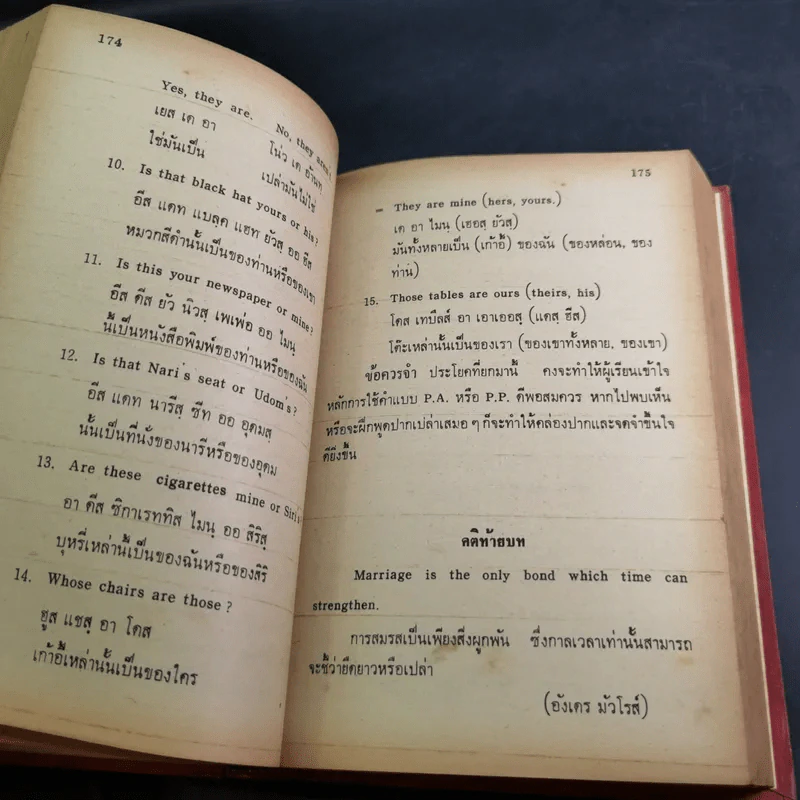 174
Yes, they are. No, they aren't
เยส เด อา โน่ว เด อ้านทฺ
ใช่มันเป็น เปล่ามันไม่ใช่
10. Is that black hat yours or his?
อีส แดท แบลฺค แฮท ยัวสฺ ออ ฮีส
หมวกสีดำนั้นเป็นของท่านหรือของเขา
11. Is this your newspaper or mine?
อีส ดีส ยัว นิวสฺ เพเพ่อ ออ ไมนฺ
นี้เป็นหนังสือพิมพ์ของท่านหรือของฉัน
12. Is that Nari's seat or Udom's?
อีส แดท นารีสฺ ซีท ออ อุดมสฺ
นั้นเป็นที่นั่งของนารีหรือของอุดม
13. Are these cigarettes mine or
อา ดีส ซิกาเรททิส ไมนฺ ออ สิริสฺ
บุหรี่เหล่านี้เป็นของฉันหรือของสิริ
14. Whose chairs are those?
ฮูส แชสฺ อา โดส
เก้าอี้เหล่านั้นเป็นของใคร
175
– They are mine (hers, yours.)
เด อา ไมนฺ (เฮอสฺ ยัวสฺ)
มันทั้งหลายเป็น (เก้าอี้) ของฉัน (ของหล่อน, ของ
ท่าน)
15. Those tables are ours (theirs, his)
โดส เทบีลส์ อา เอาเออสฺ (แดสฺ ฮีส)
โต๊ะเหล่านั้นเป็นของเรา (ของเขาทั้งหลาย, ของเขา)
ข้อควรจำ ประโยคที่ยกมานี้ คงจะทำให้ผู้เรียนเข้าใจ
หลักการใช้คำแบบ P.A. หรือ P.P. ดีพอสมควร หากไปพบเห็น
หรือจะฝึกพูดปากเปล่าเสมอ ๆ ก็จะทำให้คล่องปากและจดจำขึ้นใจ
ดียิ่งขึ้น
คติท้ายบท
Marriage is the only bond which time can
strengthen.
การสมรสเป็นเพียงสิ่งผูกพัน ซึ่งกาลเวลาเท่านั้นสามารถ
จะชี้ว่ายืดยาวหรือเปล่า
(อังเดร มัวโรส์)